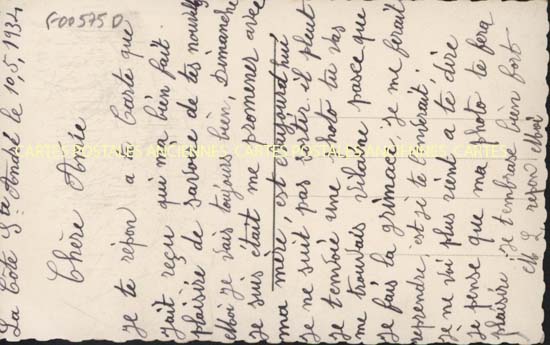 F00575D
La Côte St André le 10,5,1934
Chère Amie
je te répon a ta Carte que
j'ait reçu qui m'a bien fait
plaisire de savoire de tes nouvelle
emoi je vais toujours bien, Dimanche
je suis était me promener avec
ma mère, est aujourd'hui
je ne suit pas sortir il pleut
je t'envoié une photo tu vas
me trouvais vilaine pasce que
je fais la grimace, je me ferait
reprendre, est je te l'enverait.
je ne voi plus rient a te dire
je pense que ma photo te fera
plaisir je t'embrasse bien fort
repon emoi
CARTES POSTALES ANCIENNES CARTES POSTALES ANCIENNES CARTES